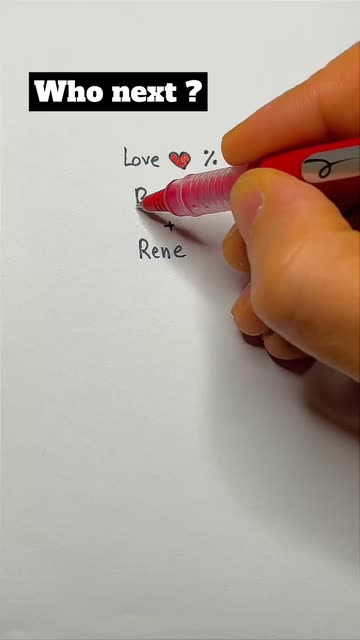 Who next ?
Love ❤ %
+
Rene